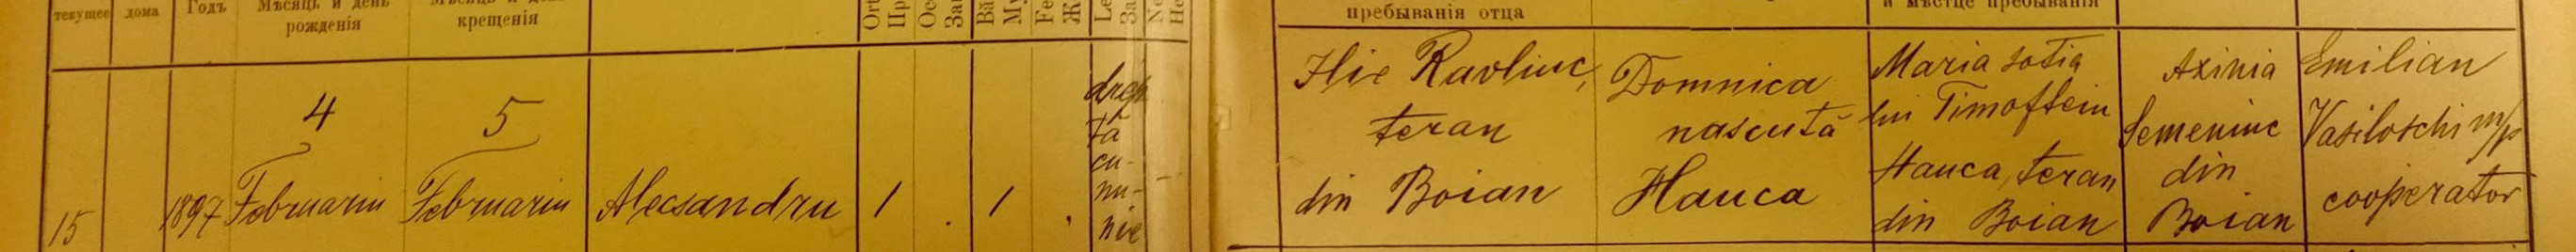 текущее
дома
Годъ
Мѣсяцъ и день
рожденія
Мѣсяцъ и день
крещенія
пребыванія отца
и мѣстце пребыванія
15
1897
4
Februariu
5
Februariu
Alecsandru
1
1
drép
tă
cu-
nu-
nie
Ilie Ravliuc,
țeran
din Boian
Domnica
născută
Hauca
Maria soția
lui Timofteiu
Hauca, țeran
din Boian
Axinia
Semeniuc
din
Boian
Emilian
Vasiloschi m/p
cooperator